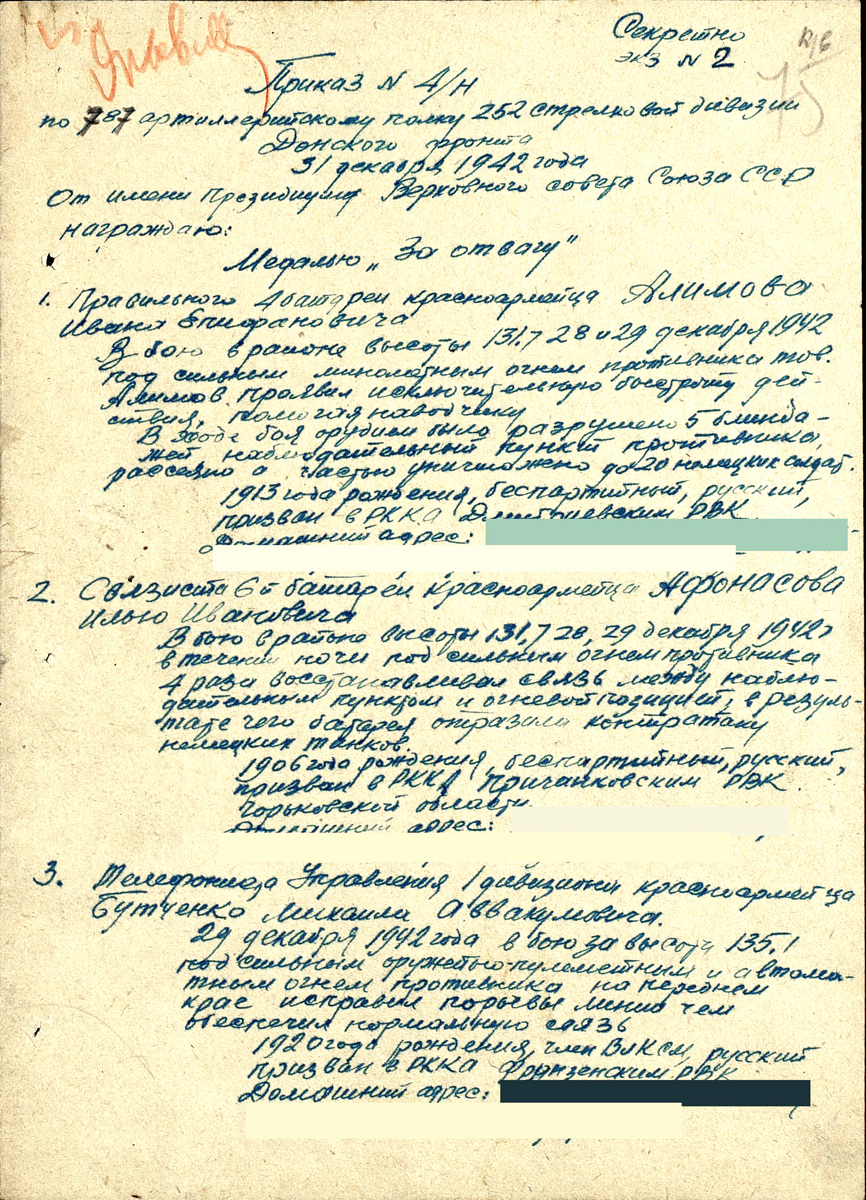 Секретно
экз N 2
Приказ N 4/н
по 787 артиллерийскому полку 252 стрелковой дивизии
Донского фронта
31 декабря 1942 года
От имени Президиума Верховного совета Союза ССР
награждаю:
Медалью „За отвагу"
1. Правильного 4 батареи красноармейца Алимова
Ивана Епифановича
В бою в районе высоты 131.7 28 и 29 декабря 1942
под сильным минометным огнем противника тов.
Алимов проявил исключительную быстроту дей-
ствия, помогая наводчику
В ходе боя орудием было разрушено 5 блинда-
жей наблюдательный пункт противника,
рассеяно а частью уничтожено до 20 немецких солдат.
1913 года рождения, беспартийный, русский,
призван в РККА РВК
Домашний адрес:
2. Связиста 6й батареи красноармейца Афонасова
Илью Ивановича
В бою в районе высоты 131,7 28, 29 декабря 1942г
в течении ночи под сильным огнем противника
4 раза восстанавливал связь между наблю-
дательным пунктом и огневой позицией, в резуль-
тате чего батарея отразила контратаку
немецких танков.
1906 года рождения, беспартийный, русский,
призван в РККА РВК
Горьковской области
Домашний адрес:
3. Телефониста Управления 1 дивизиона красноармейца
Бутченко Михаила Аввакумовича.
29 декабря 1942 года в бою за высоту 135.1
под сильным оружейно-пулеметным и автома-
тным огнем противника на переднем
крае исправил порывы линии чем
обеспечил нормальную связь
1920 года рождения, член ВЛКСМ, русский
призван в РККА Фрунзенским РВК
Домашний адрес: